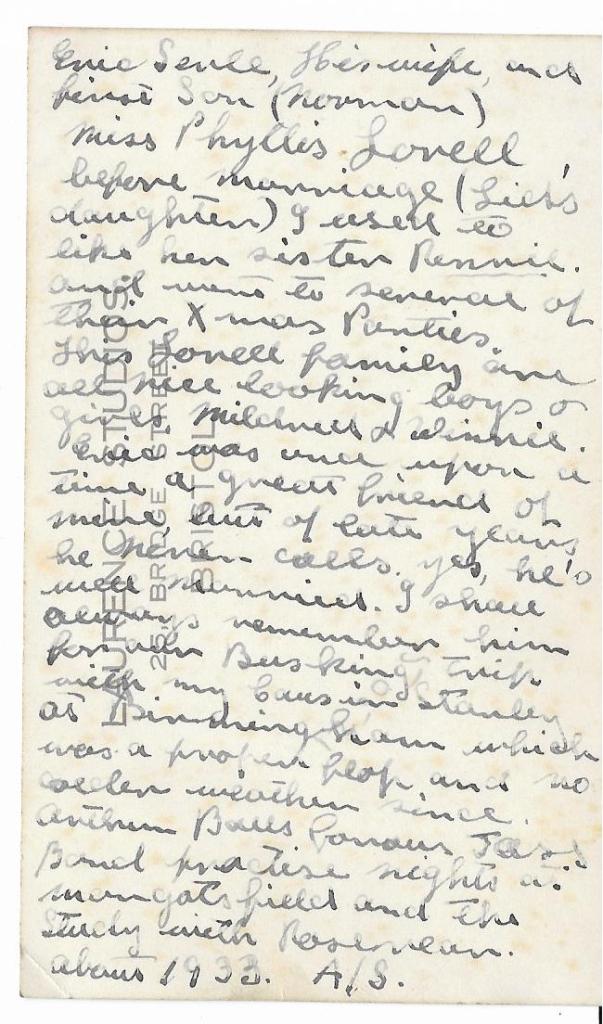 Eric Serle, His wife, and
first Son (Norman)
Miss Phyllis Lovell,
before marriage (
daughter) I used to
like her sister Rennie.
and went to several of
their Xmas Parties.
This Lovell family are
all nice looking boys &
girls, Mildred & Winnie.
Eric was once upon a
time a great friend of
mine, but of late years
he never calls. yes, he's
well married. I shall
always remember him
for our Busking trip
with my Cousin Stanley
at Birmingham which
was a proper flop and no
colder weather since.
Arthur Balls famous Jazz
Band practise nights at
mangotsfield and the
study with Rosevear.
about 1933. A/S.
LAURENCE STUDIOS
25, BRIDGE STREET
BRISTOL